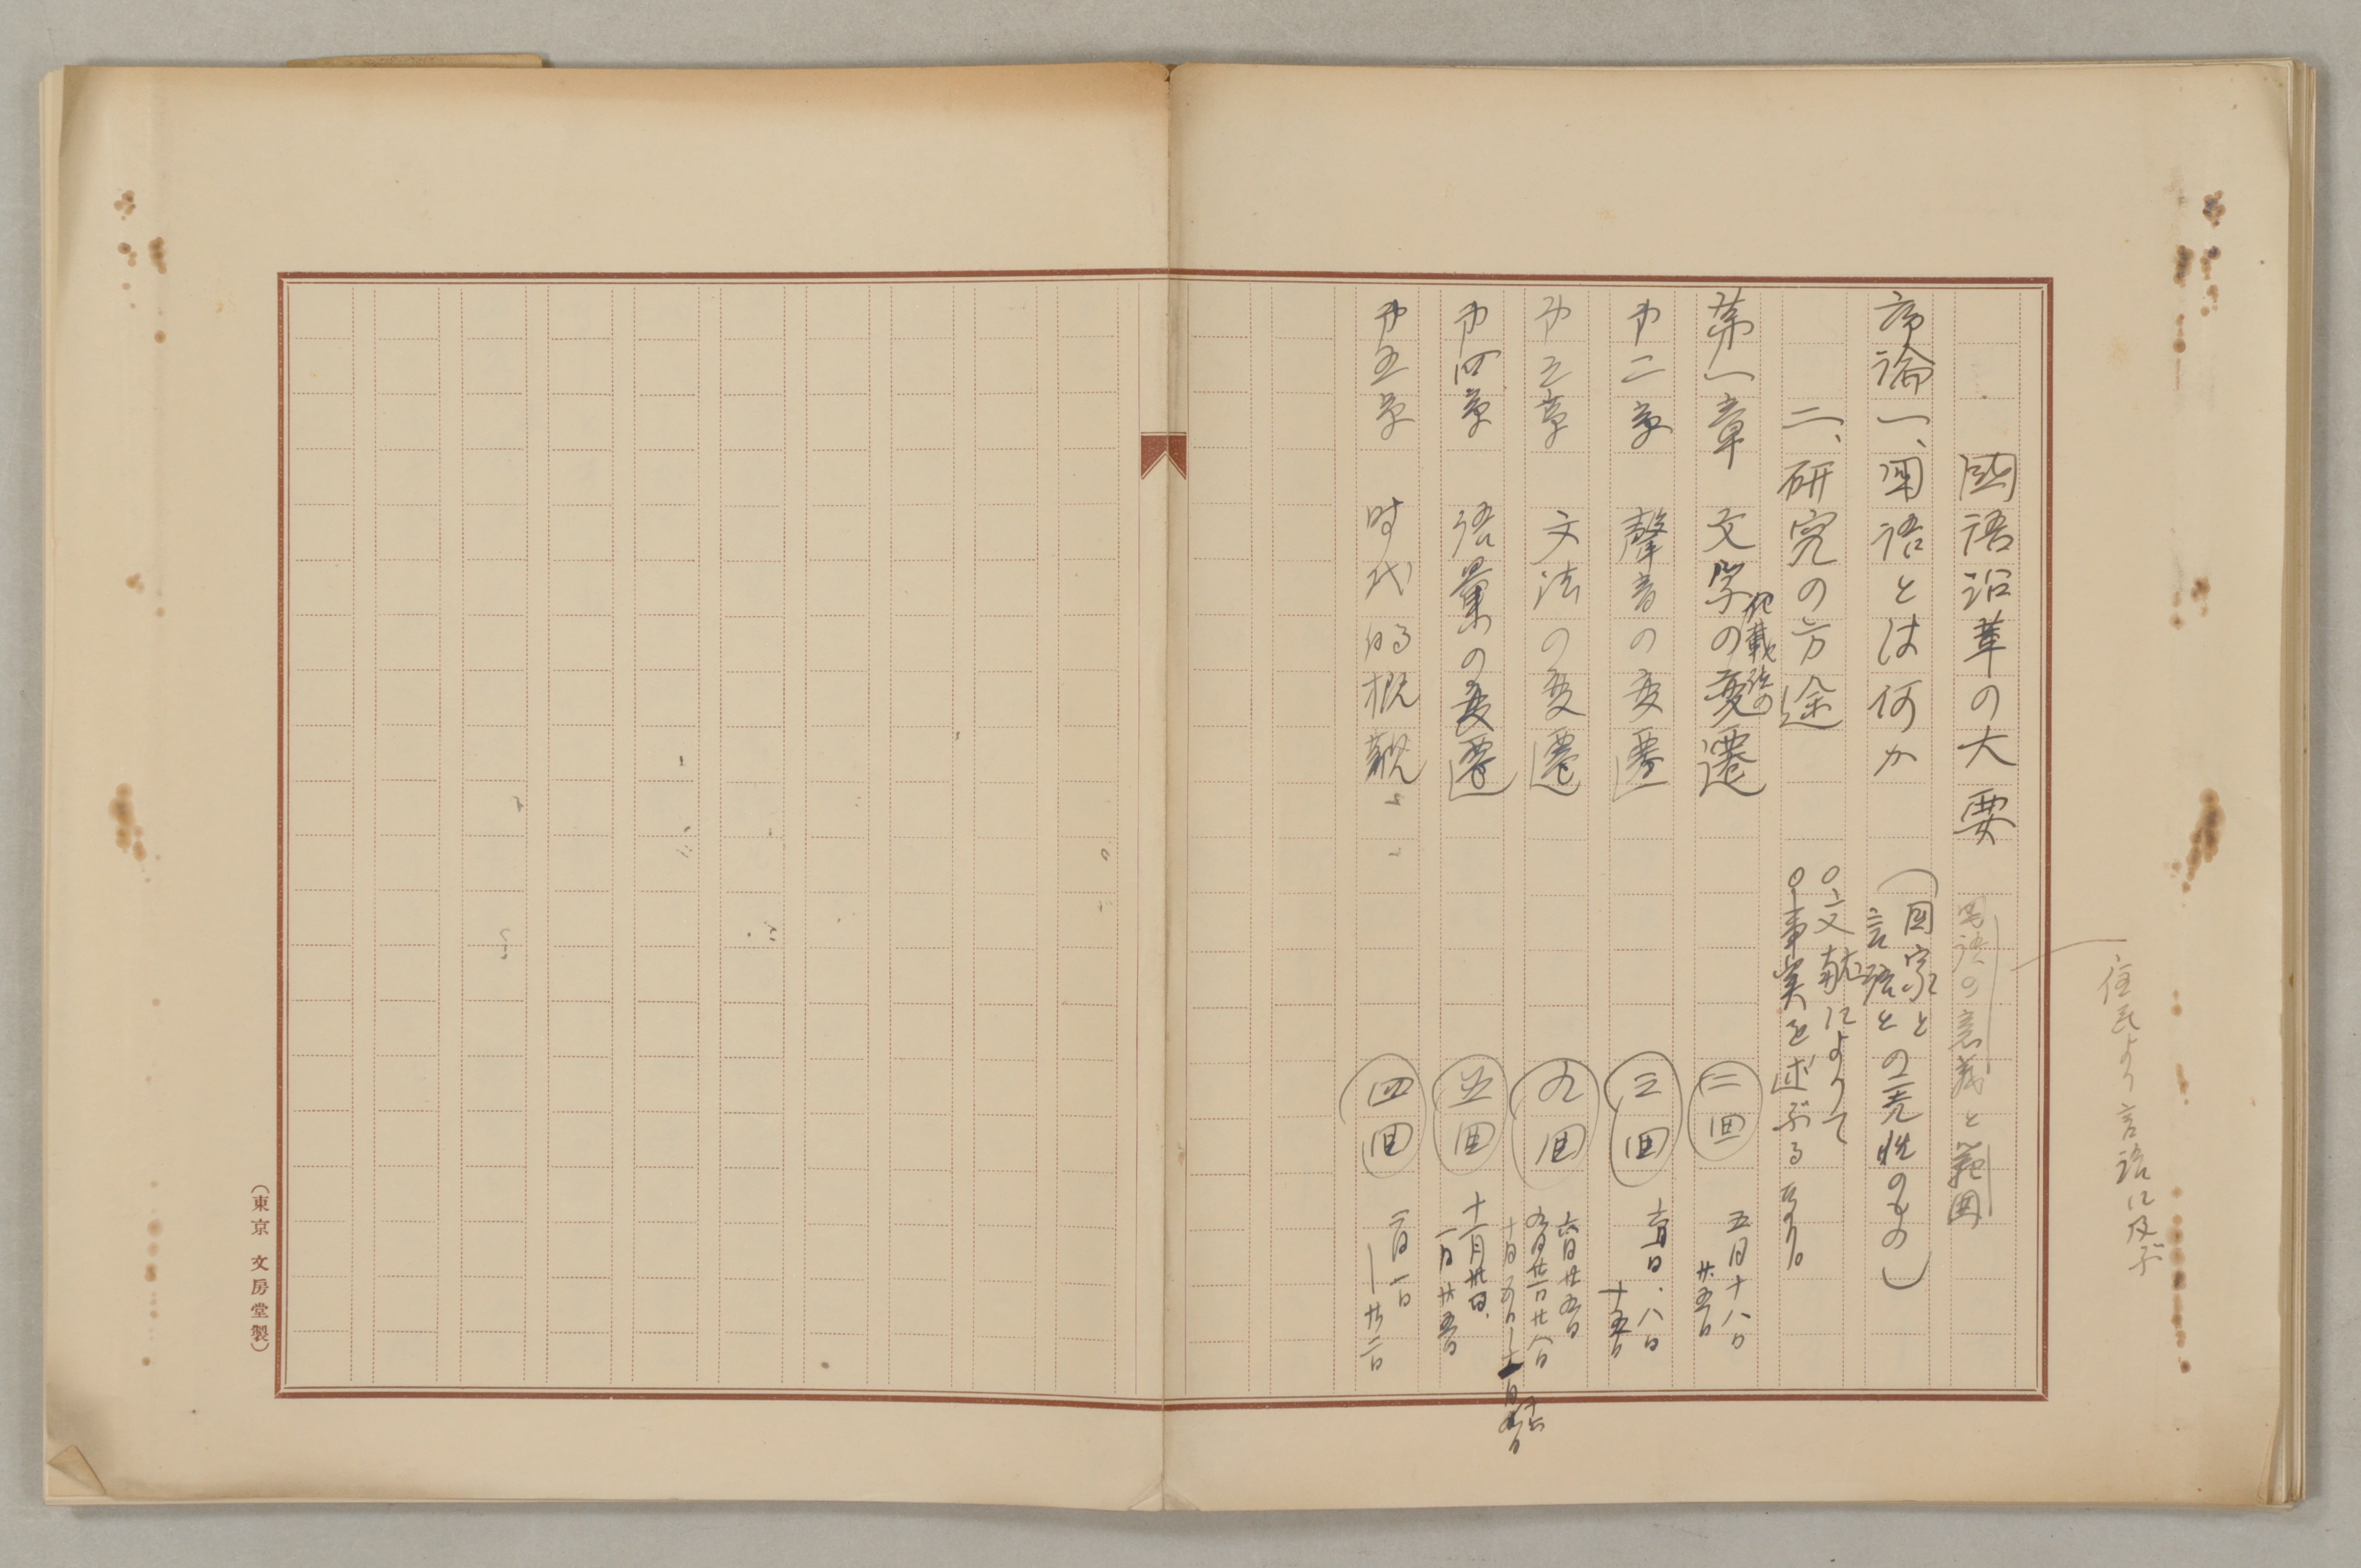 國語沿革の大要
国語の意義と範囲
住民より言語に及ぶ
序論一、国語とは何か
(国家と
言語との充性のもの)
二、研究の方途
○文献によりて
○事実を述ぶるあり。
第一章 文字の変遷
記載法の
二回
五月十八日
廿五日
㐧二章 聲音の変遷
三回
六月一日・八日
十五日
㐧三章 文法の変遷
九回
六月廿五日
九月廿一日廿八日
㐧四章 語彙の変遷
五回
十一月廿日、
一月廿五日
㐧五章 時代的概観
四回
二月一日
―廿二日
(東京 文房堂製)